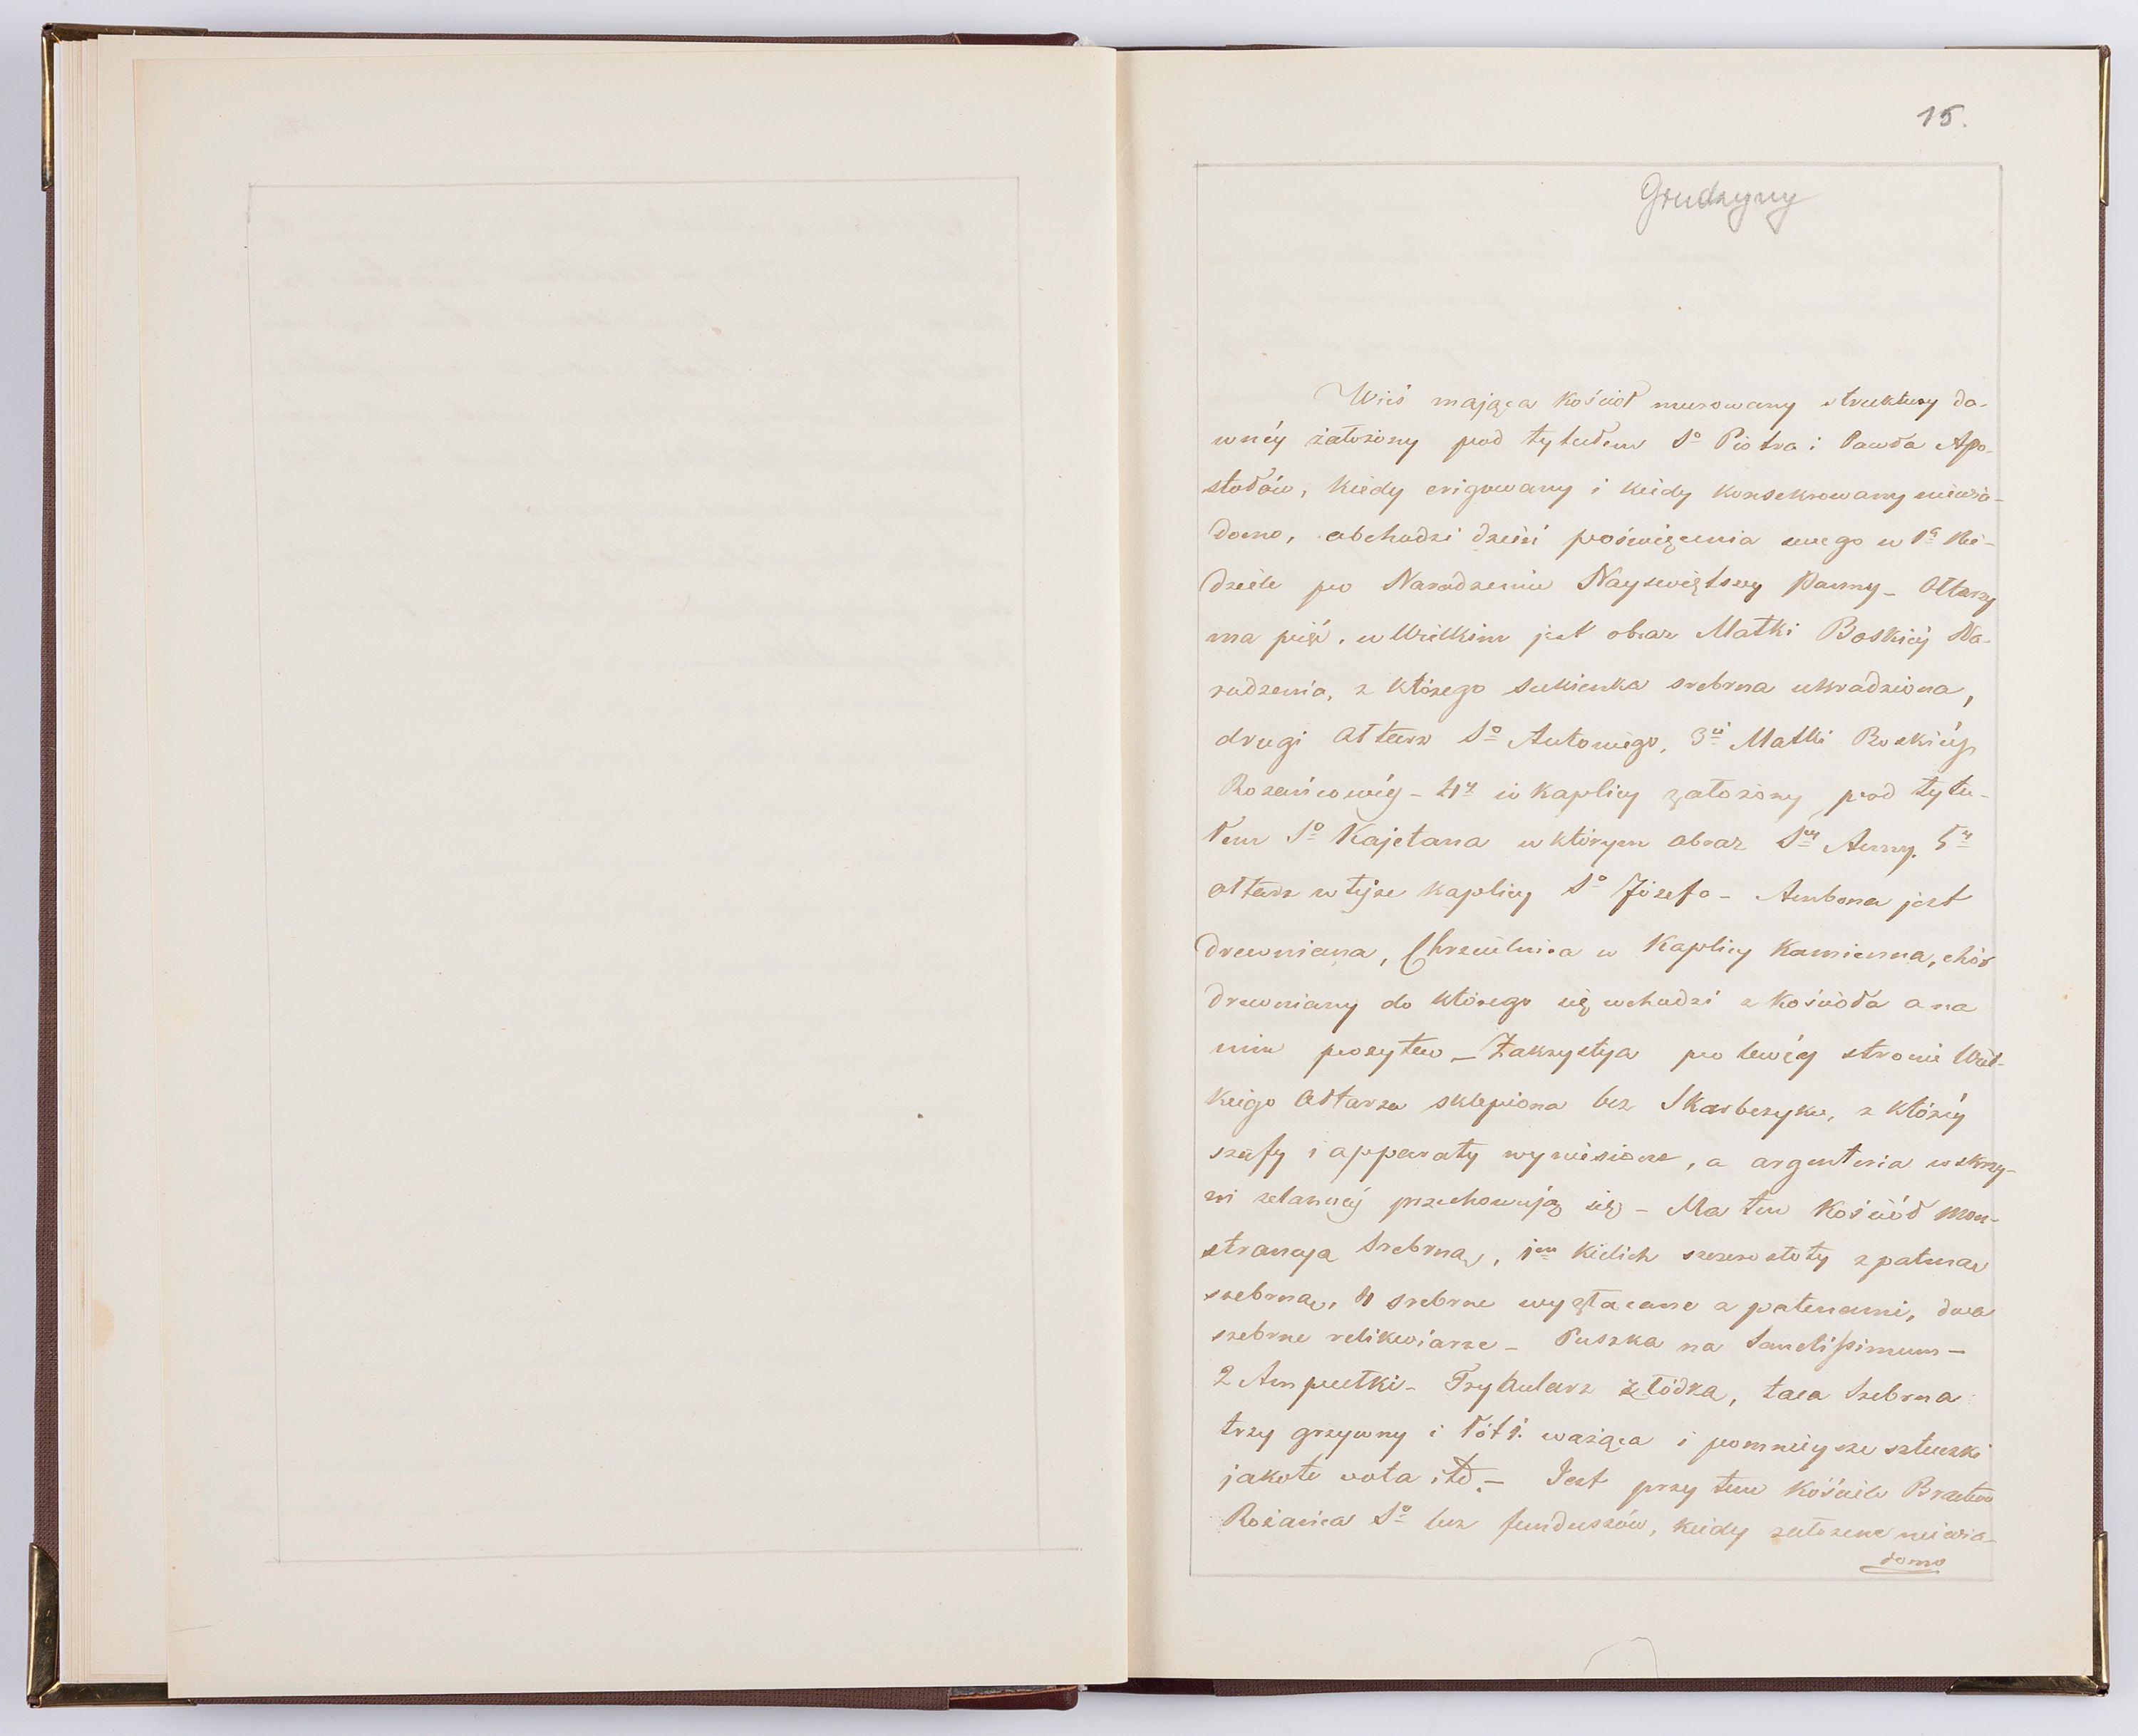 15.
Grudzyny
Wieś mająca kościoł murowany struktury da-
wnéy założony pod tytułem Sº Piotra i Pawła Apo-
stołów, kiedy erigowany i kiedy konsekrowany niewia-
domo, obchodzi dzień poświęcenia swego w 1ą Nie-
dziele po Narodzeniu Nayświętszey Panny - Ołtarzy
ma pięć, w Wielkim jest obraz Matki Boskiéy Na-
rodzenia, z którego sukienka srebrna ukradziona,
drugi Ołtarz Sº Antoniego, 3ci Matki Boskiéy
Rożańcowéy - 4y w kaplicy założony pod tytu-
łem Sº Kajetana w którym obraz Sey Anny. 5y
ołtarz w téjże kaplicy Sº Józefa - Ambona jest
drewniana, Chrzcielnica w Kaplicy kamienna, chór
drewniany do którego się wchodzi z kościoła a na
nim pozytew - Zakrystya po lewéy stronie Wiel-
kiego Ołtarza sklepiona bez Skarbczyku, z któréy
szafy i apparaty wyniesione, a argenteria w skrzy-
ni żelaznéy przechowują się - Ma ten kościół mon-
strancyą srebrną, 1en kielich szczerozłoty z pateną
srebrną, 4 srebrne wyzłacane z patenami, dwa
srebrne relikwiarze - Puszka na Sanctissimum -
2 Ampułki - Trybularz z łódką, taca srebrna
trzy grzywny i łót 1. ważąca i pomnieysze sztuczki
jakoto wota itd. - Jest przy tem kościele Bractwo
Rożańca Sº bez funduszów, kiedy założone niewia-
domo